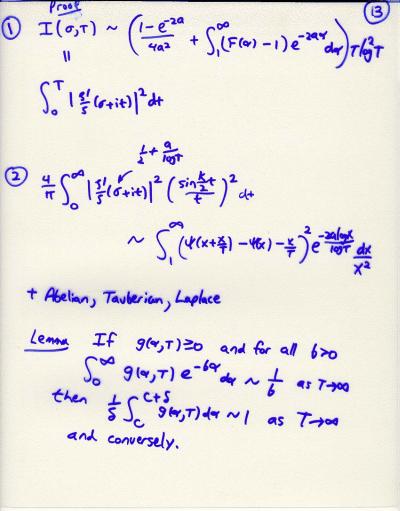 Proof
⑬
① I(σ,T) ~ ( (1-e^{-2a})/(4a²) + ∫_1^∞ (F(α)-1) e^{-2aα} dα ) T log²T
||
∫_0^T |ζ'/ζ (σ+it)|² dt
1/2 + a/logT
② 4/π ∫_0^∞ |ζ'/ζ (σ+it)|² ( (sin κ/2 t)/t )² dt
~ ∫_1^∞ (ψ(x+x/T) - ψ(x) - x/T)² e^{-2a logx/logT} dx/x²
+ Abelian, Tauberian, Laplace
Lemma If g(α,T)≥0 and for all b>0
∫_0^∞ g(α,T) e^{-bα} dα ~ 1/b as T→∞
then 1/δ ∫_C^{C+δ} g(α,T) dα ~ 1 as T→∞
and conversely.